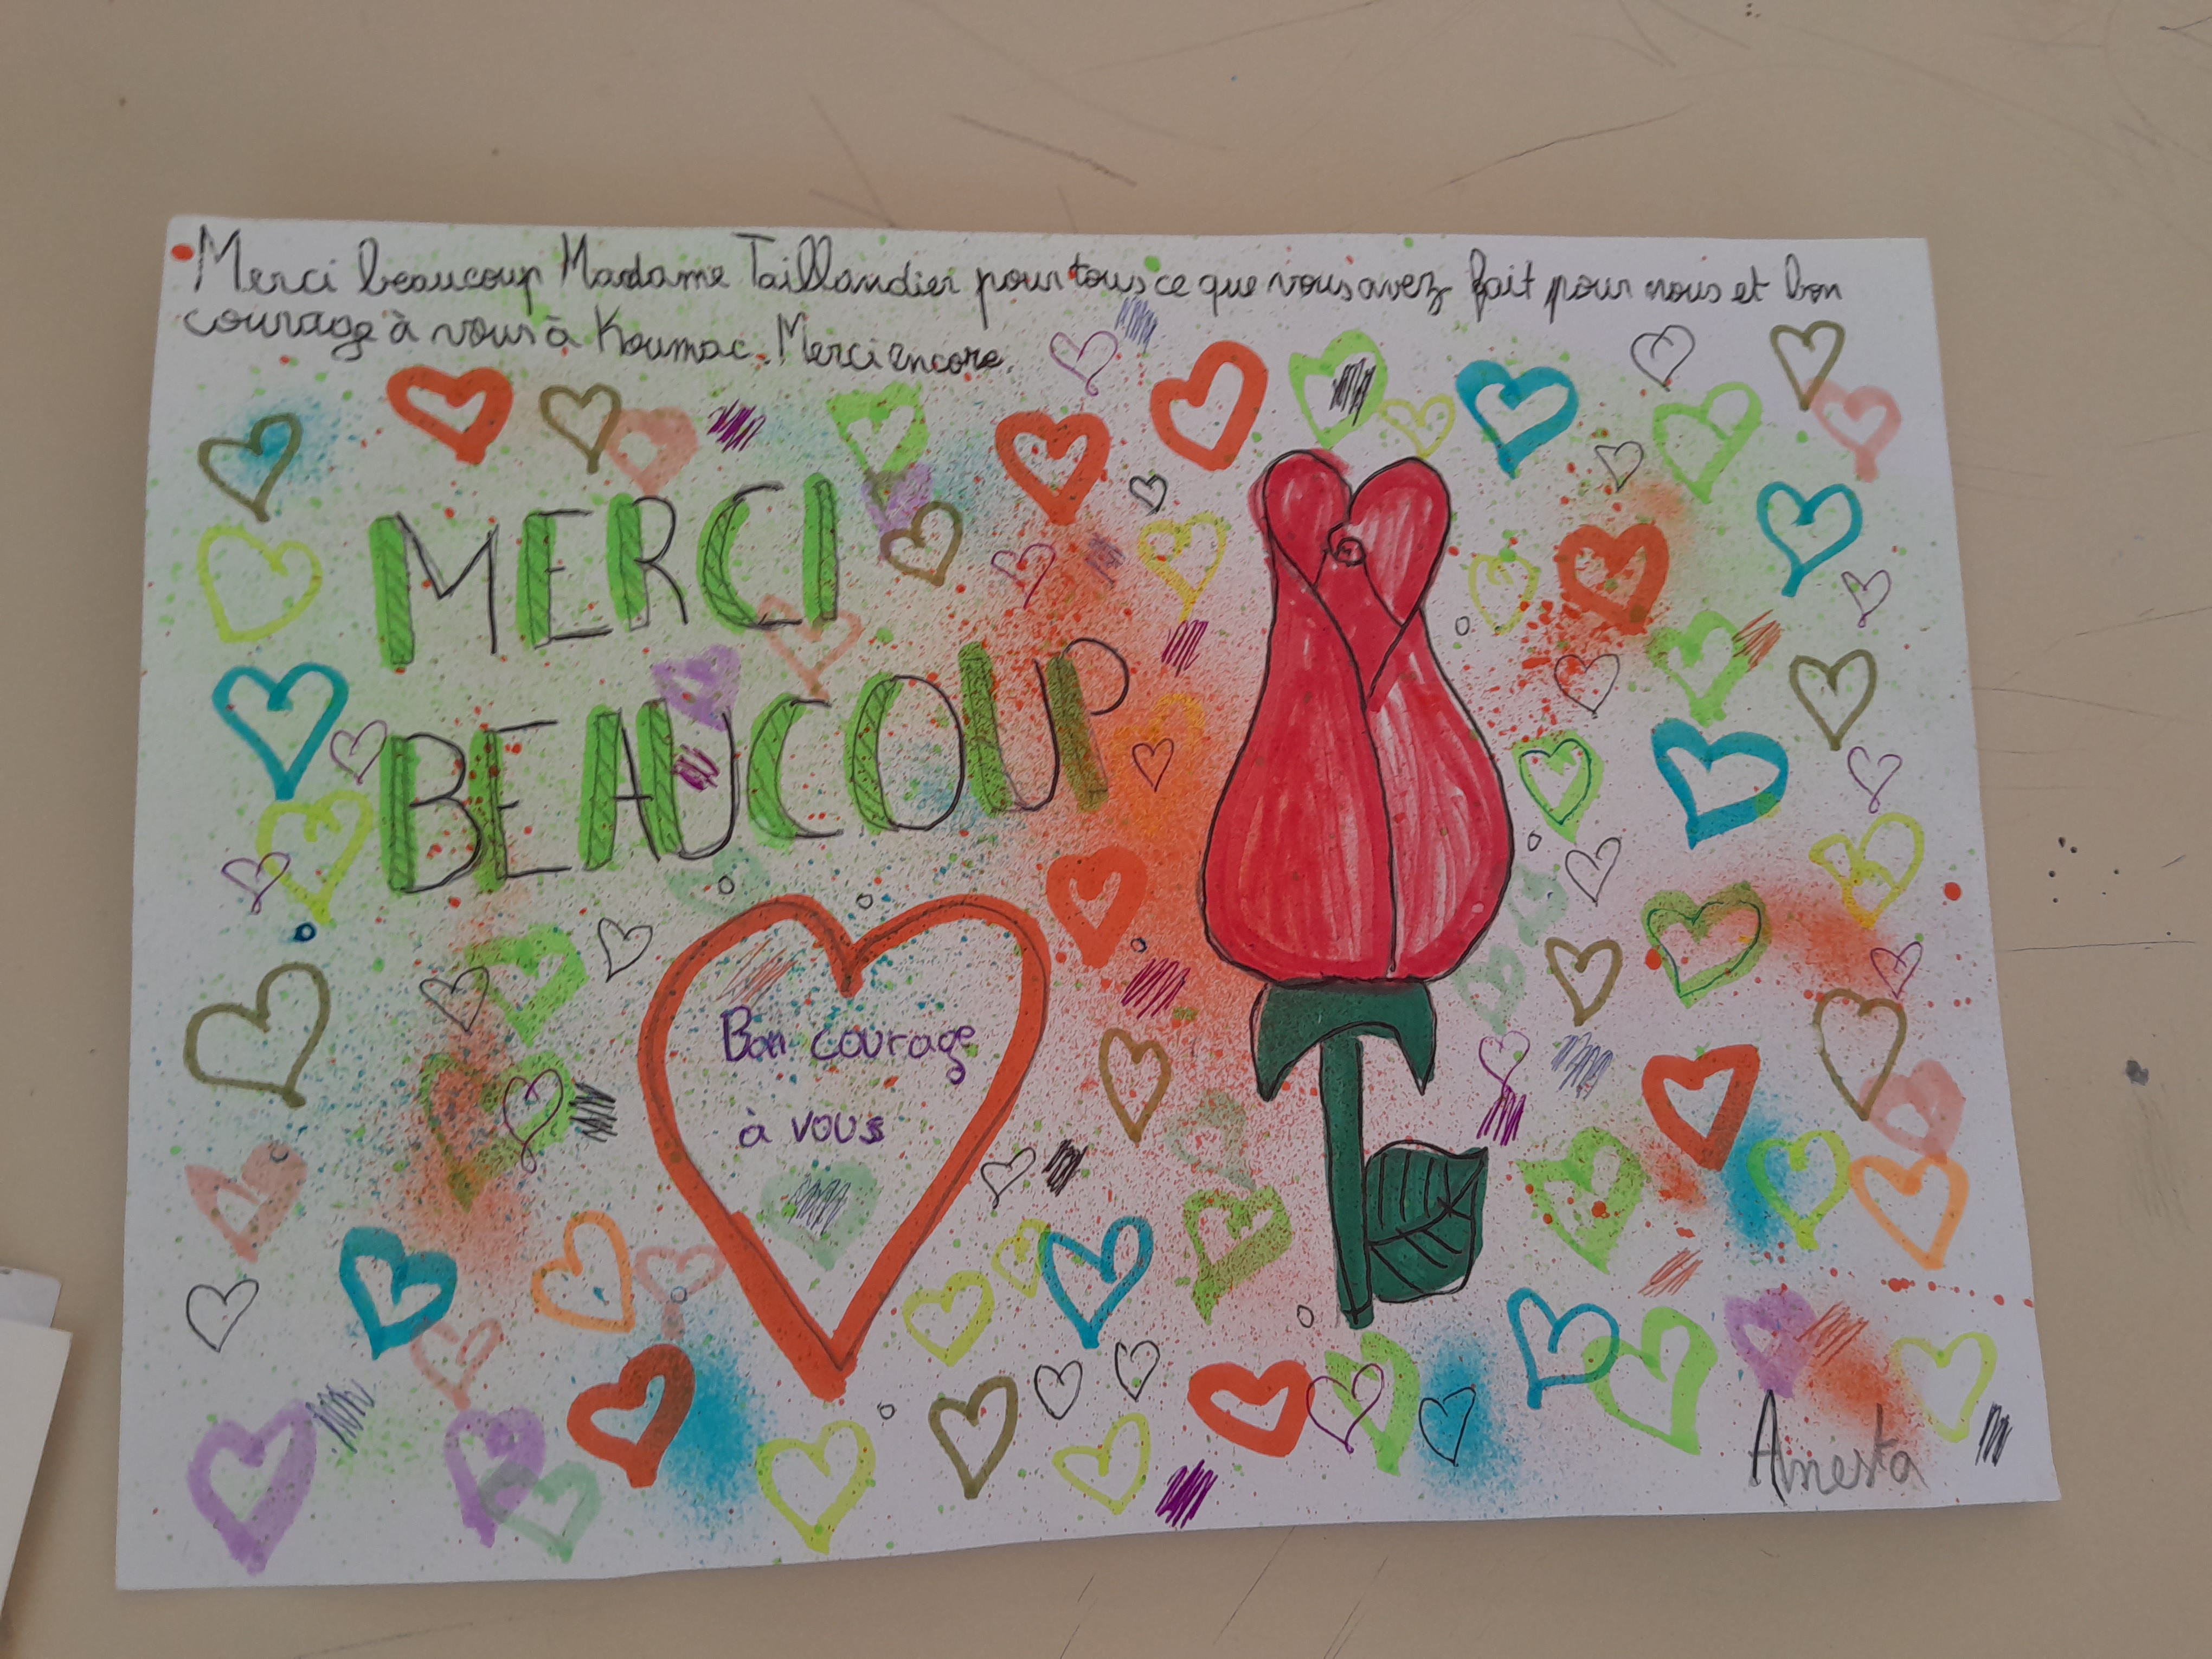 Merci beaucoup Madame Taillandier pour tous ce que vous avez fait pour nous et bon
courage à vous à Koumac. Merci encore.
MERCI
BEAUCOUP
Bon courage
à vous
Anesta